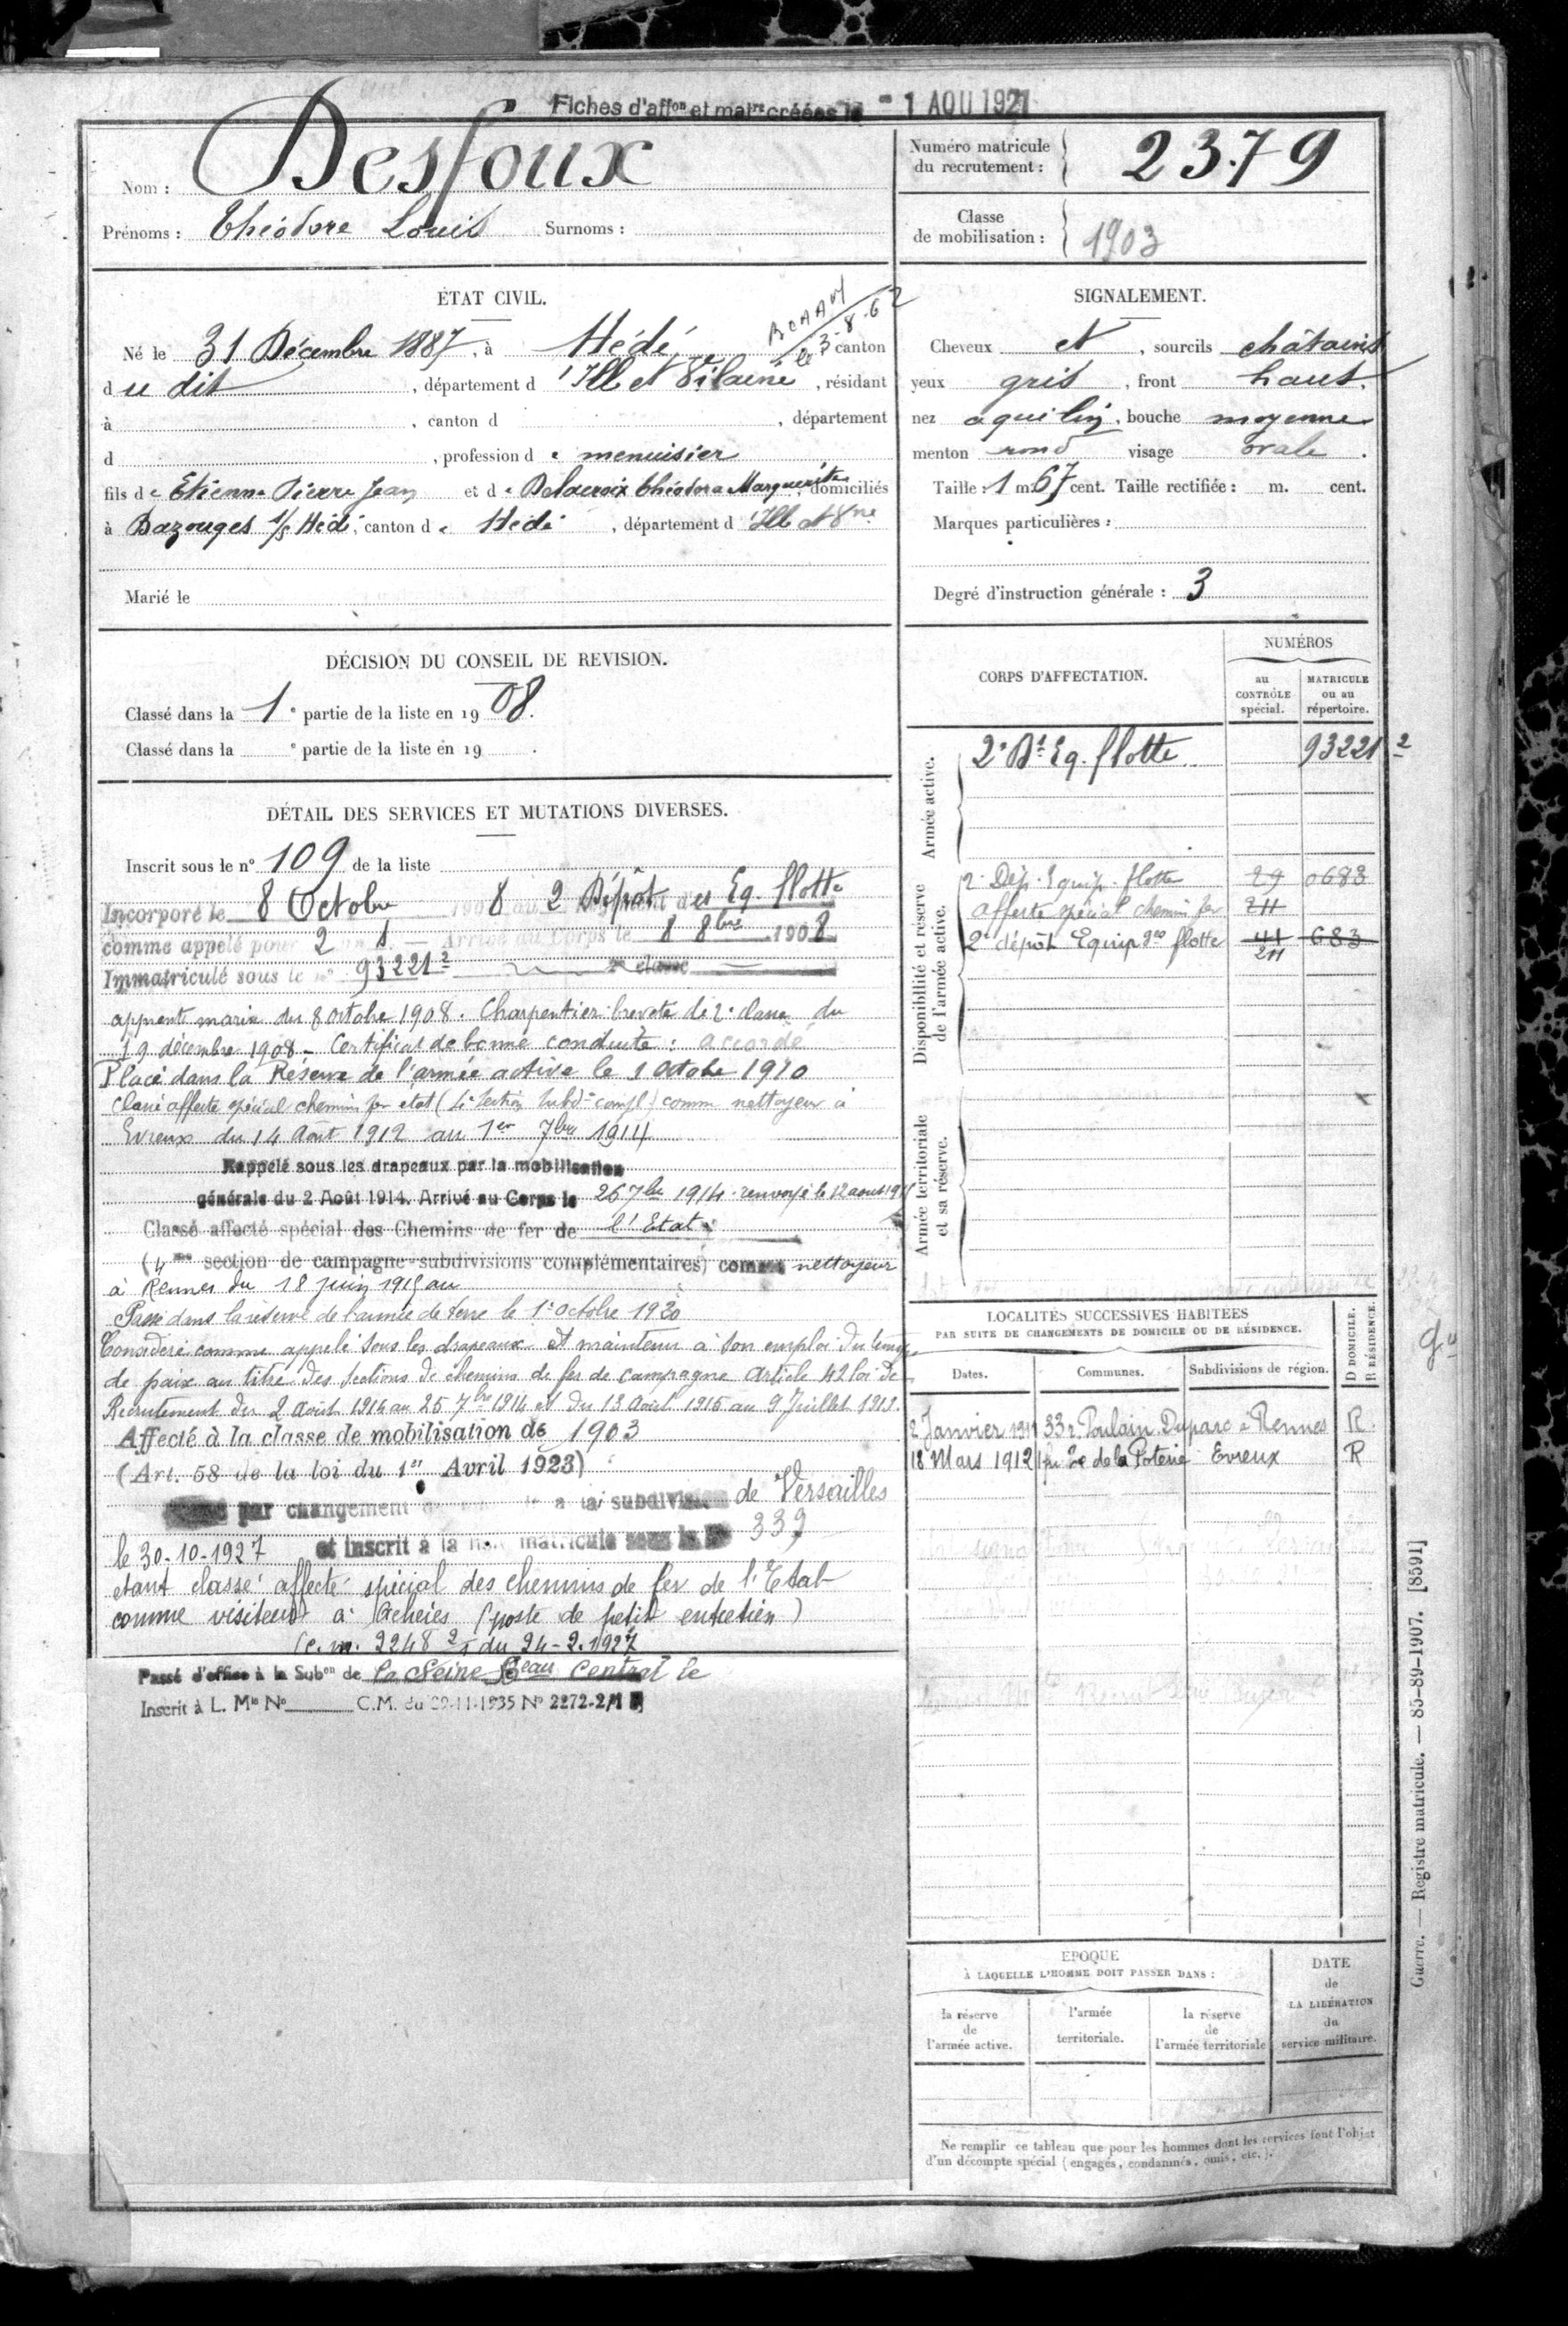 Fiches d'affon et matre créées le - 1 AOU 1921
Nom : Desfoux
Prénoms : Théodore Louis Surnoms :
Numéro matricule
du recrutement : 2379
Classe
de mobilisation : 1903
ÉTAT CIVIL.
le 3-8-62
Né le 31 Décembre 1887, à Hédé, canton
du dit, département d'Ille et Vilaine, résidant
à , canton d , département
d , profession de menuisier
fils de Etienne Pierre Jean et de Delacroix Théodora Marguerite, domiciliés
à Bazouges s/s Hédé, canton de Hédé, département d'Ille et Vne
Marié le
SIGNALEMENT.
Cheveux et , sourcils châtains
yeux gris , front haut.
nez aquilin, bouche moyenne
menton rond visage ovale.
Taille : 1 m. 67 cent. Taille rectifiée : m. cent.
Marques particulières :
Degré d'instruction générale : 3
DÉCISION DU CONSEIL DE REVISION.
Classé dans la 1e partie de la liste en 1908.
Classé dans la e partie de la liste en 19 .
DÉTAIL DES SERVICES ET MUTATIONS DIVERSES.
Inscrit sous le n° 109 de la liste
Incorporé le 8 Octobre 1908 au 2 Dépôt des Eq. flotte
comme appelé pour 2 — Arrivé au Corps le 8 8bre 1908
Immatriculé sous le n° 93221²
apprenti marin du 8 octobre 1908. Charpentier breveté de 2e classe du
19 décembre 1908 - Certificat de bonne conduite : accordé
Placé dans la Réserve de l'armée active le 1 Octobre 1910
Classé affecté spécial chemin fer état (4e Section Subdon compl) comme nettoyeur à
Evreux du 14 Août 1912 au 1er 7bre 1914
Rappelé sous les drapeaux par la mobilisation
générale du 2 Août 1914. Arrivé au Corps le 26 7bre 1914. renvoyé le 12 aout
Classé affecté spécial des Chemins de fer de l'Etat
(4me section de campagne-subdivisions complémentaires) comme nettoyeur
à Rennes du 18 juin 1915 au
Passé dans la réserve de l'armée de terre le 1er octobre 1920
Considéré comme appelé sous les drapeaux et maintenu à son emploi du temps
de paix au titre des Sections de chemins de fer de campagne Article 42 loi de
Recrutement du 2 Août 1914 au 25 7bre 1914 et du 13 Août 1915 au 9 Juillet 1919.
Affecté à la classe de mobilisation de 1903
(Art. 58 de la loi du 1er Avril 1923)
par changement à la subdivision de Versailles
le 30-10-1927 et inscrit à la matricule sous le N° 339
étant classé affecté spécial des chemins de fer de l'Etat
comme visiteur à Achères (poste de petit entretien)
(C.M. 2248 2/1 du 24-2-1927
Passé d'office à la Subon de la Seine Beau Central le
Inscrit à L. Mle N° C.M. du 29-11-1935 N° 2272-2/1
CORPS D'AFFECTATION.
NUMÉROS
au
CONTRÔLE
spécial.
MATRICULE
ou au
répertoire.
Armée active.
2e Dt Eq. flotte 93221²
Disponibilité et réserve
de l'armée active.
2 Dép. Equip. flotte 29 0683
affecté spécial chemin fer 211
2e dépôt Equipges flotte 41 683
211
Armée territoriale
et sa réserve.
LOCALITÉS SUCCESSIVES HABITÉES
PAR SUITE DE CHANGEMENTS DE DOMICILE OU DE RÉSIDENCE.
Dates. Communes. Subdivisions de région. D DOMICILE. R RÉSIDENCE.
2 Janvier 1911 33 r. Poulain Duparc à Rennes R.
18 Mars 1912 de la Poterie Evreux R
ÉPOQUE
À LAQUELLE L'HOMME DOIT PASSER DANS :
la réserve
de
l'armée active.
l'armée
territoriale.
la réserve
de
l'armée territoriale
DATE
de
LA LIBÉRATION
du
service militaire.
Ne remplir ce tableau que pour les hommes dont les services font l'objet
d'un décompte spécial (engagés, condamnés, omis, etc.).
Guerre. — Registre matricule. — 85-89-1907. [8591]